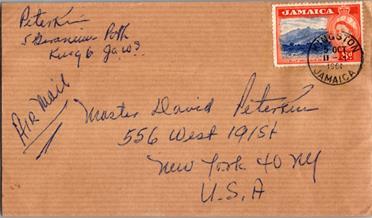 Peterkin
5 Geranium Path
Kung 6 Ja. W.I.
AIR MAIL
JAMAICA
KINGSTON
5 OCT
1961
JAMAICA
Master David Peterkin
556 West 191 St
New York 40 NY
U.S.A